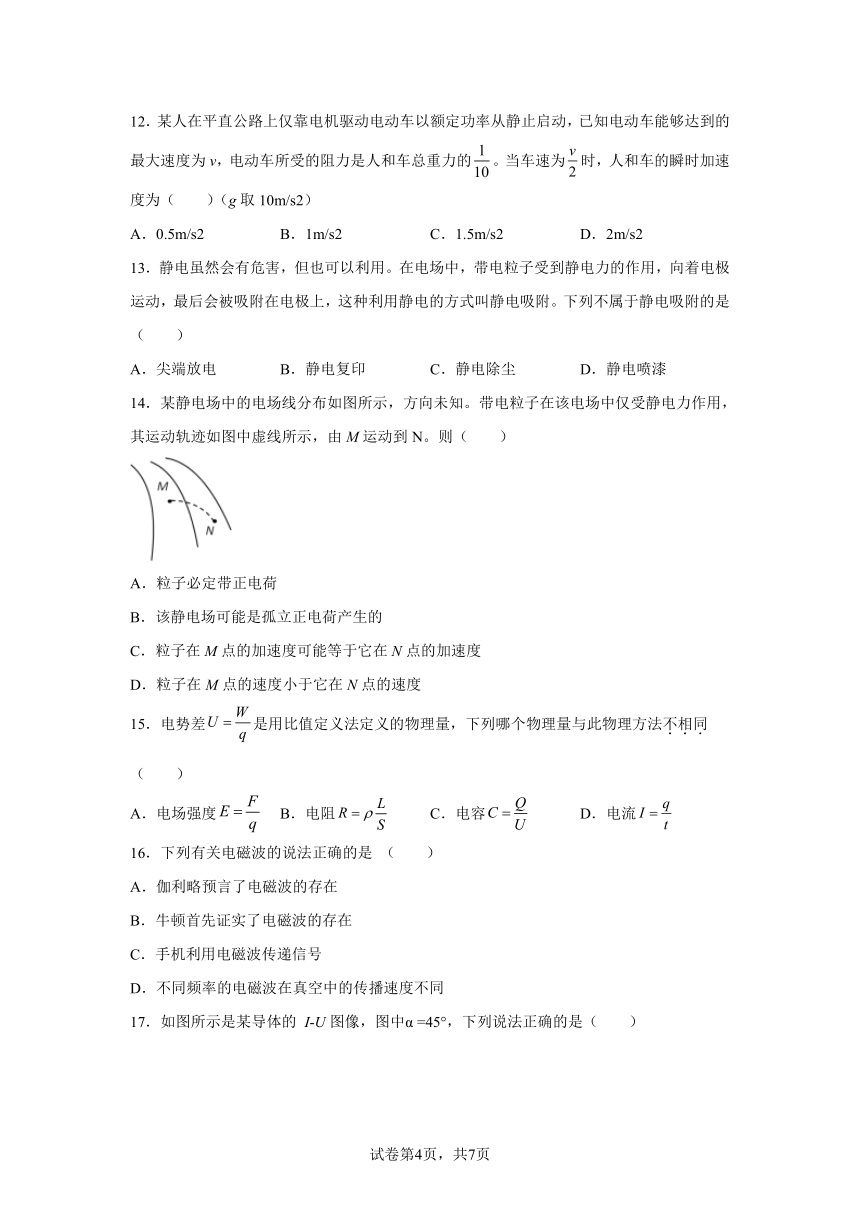 12．某人在平直公路上仅靠电机驱动电动车以额定功率从静止启动，已知电动车能够达到的
最大速度为v，电动车所受的阻力是人和车总重力的1/10。当车速为v/2时，人和车的瞬时加速
度为（　　）（g取10m/s2）
A．0.5m/s2 B．1m/s2 C．1.5m/s2 D．2m/s2
13．静电虽然会有危害，但也可以利用。在电场中，带电粒子受到静电力的作用，向着电极
运动，最后会被吸附在电极上，这种利用静电的方式叫静电吸附。下列不属于静电吸附的是
（　　）
A．尖端放电 B．静电复印 C．静电除尘 D．静电喷漆
14．某静电场中的电场线分布如图所示，方向未知。带电粒子在该电场中仅受静电力作用，
其运动轨迹如图中虚线所示，由M运动到N。则（　　）
M
N
A．粒子必定带正电荷
B．该静电场可能是孤立正电荷产生的
C．粒子在M点的加速度可能等于它在N点的加速度
D．粒子在M点的速度小于它在N点的速度
15．电势差U=W/q是用比值定义法定义的物理量，下列哪个物理量与此物理方法不相同
（　　）
A．电场强度E=F/q B．电阻R=ρL/S C．电容C=Q/U D．电流I=q/t
16．下列有关电磁波的说法正确的是 （　　）
A．伽利略预言了电磁波的存在
B．牛顿首先证实了电磁波的存在
C．手机利用电磁波传递信号
D．不同频率的电磁波在真空中的传播速度不同
17．如图所示是某导体的 I-U图像，图中α =45°，下列说法正确的是（　　）
试卷第4页，共7页